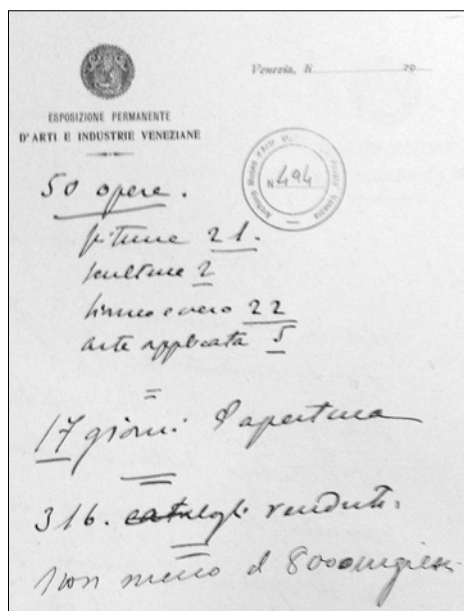 Venezia, li 19
ESPOSIZIONE PERMANENTE
D'ARTI E INDUSTRIE VENEZIANE
Archivio Museo d'Arte Venezia
N. 494
50 opere.
pitture 21.
sculture 2
bianco e nero 22
arte applicata 5
=
17 giorni d'apertura
=
316. cataloghi venduti.
=
non meno di 8000 ingressi